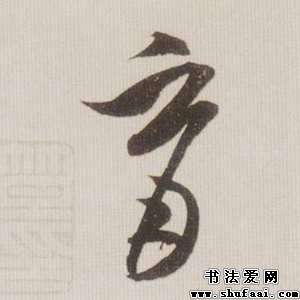 育
书法爱网
www.shufaai.com